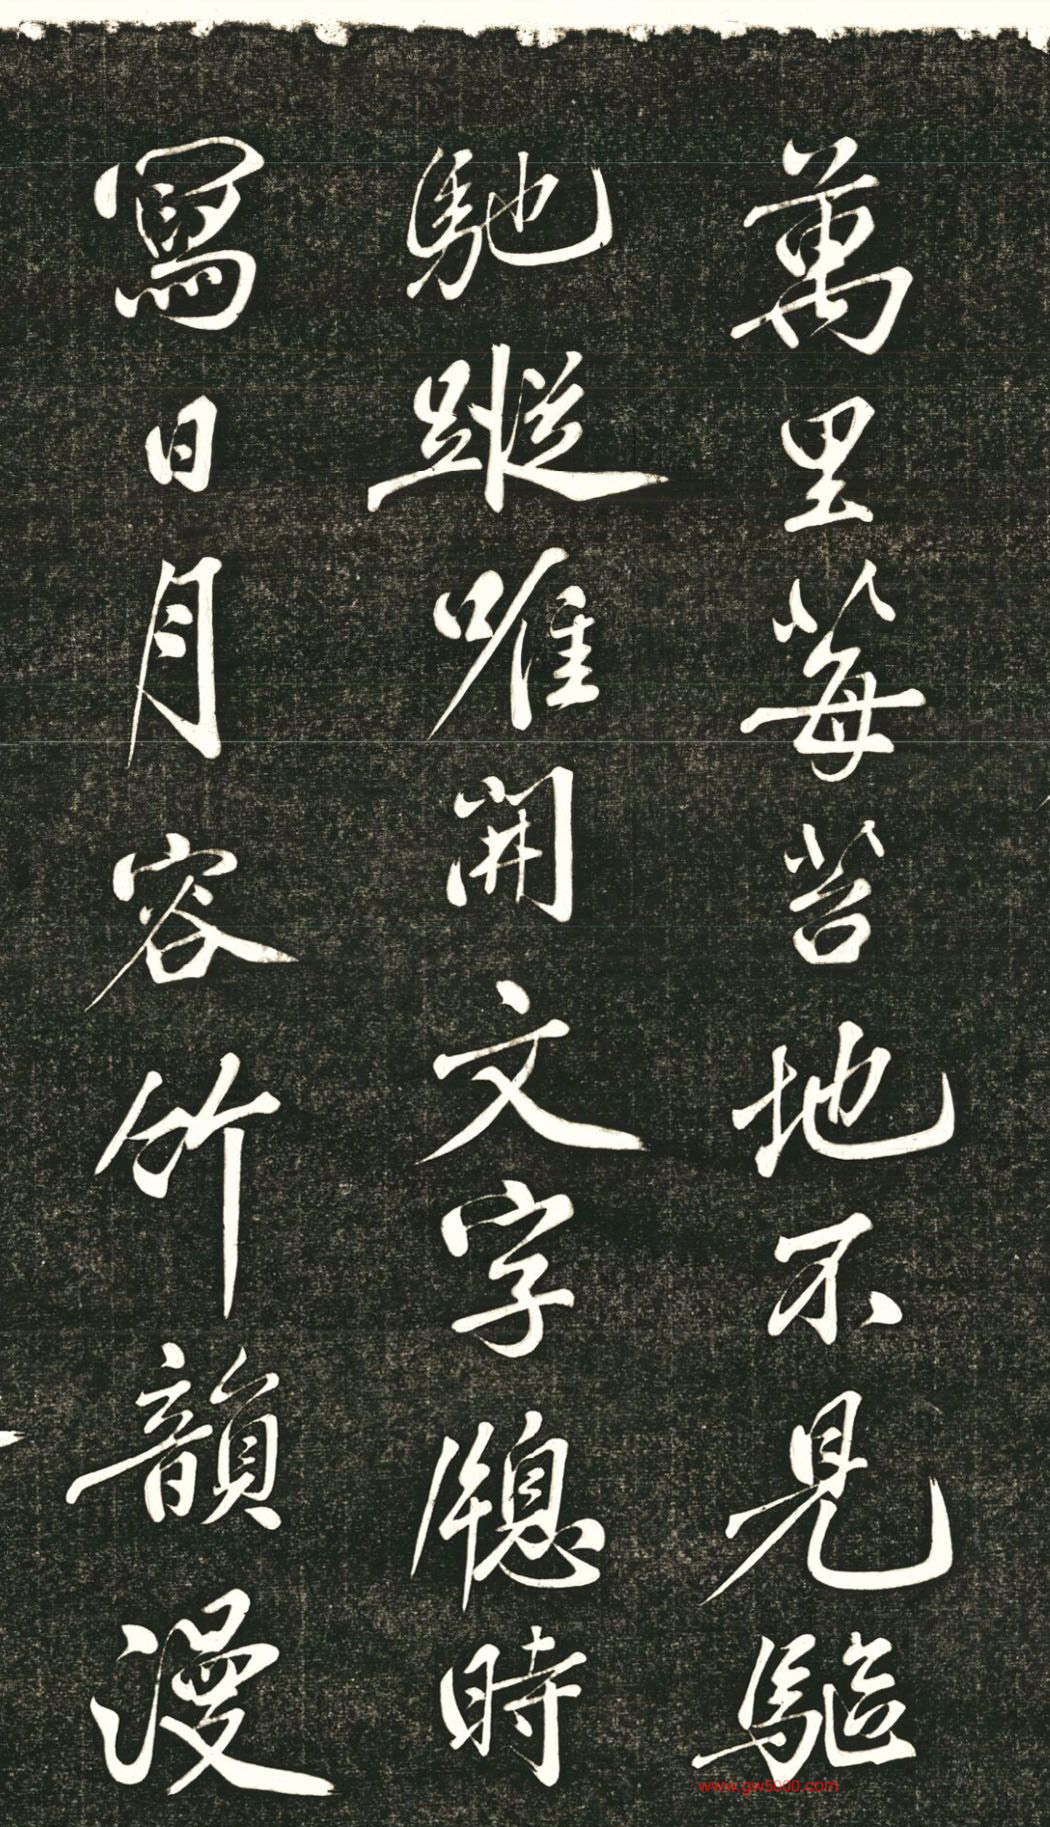 萬里莓苔地不見驅
馳蹤唯開文字牕時
寫日月容竹韻漫
www.gw5000.com